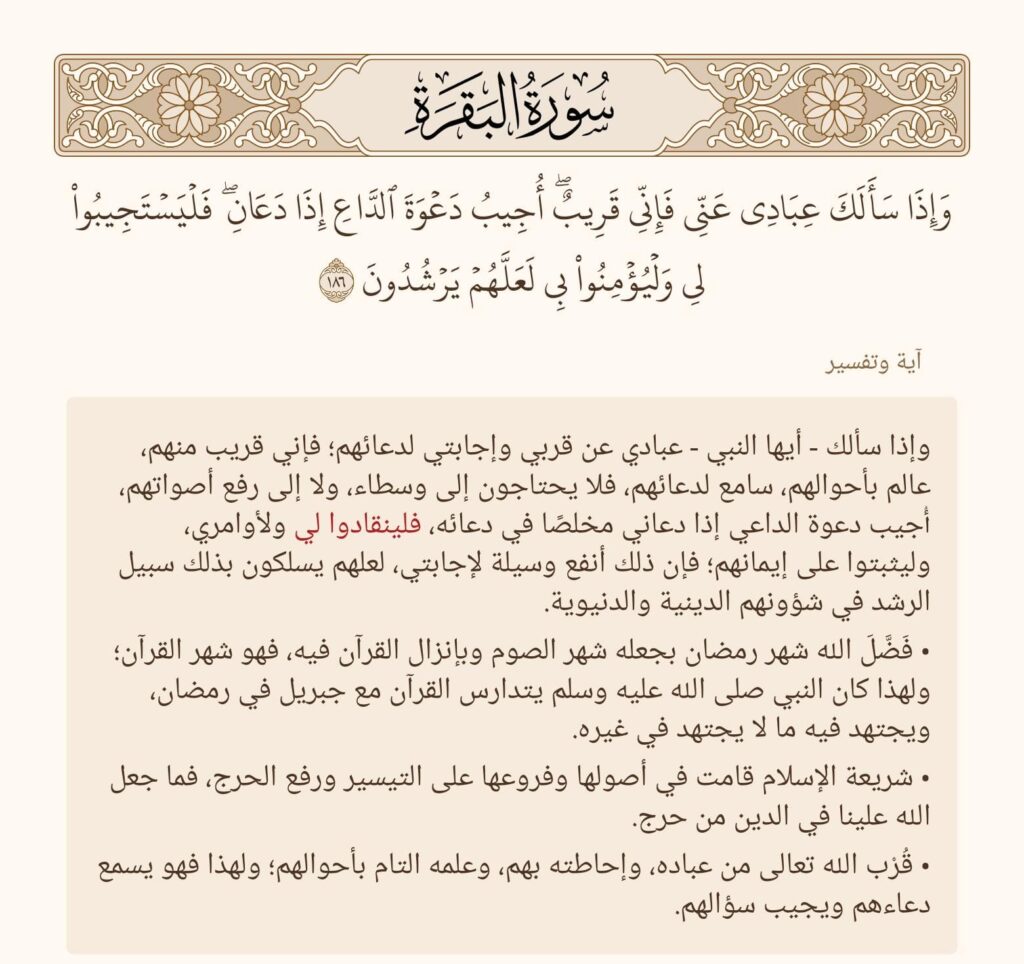 سُورَةُ البَقَرَةِ
وَإِذَا سَأَلَكَ عِبَادِى عَنِّى فَإِنِّى قَرِيبٌۖ أُجِيبُ دَعْوَةَ ٱلدَّاعِ إِذَا دَعَانِۖ فَلْيَسْتَجِيبُوا۟
لِى وَلْيُؤْمِنُوا۟ بِى لَعَلَّهُمْ يَرْشُدُونَ ١٨٦
آية وتفسير
وإذا سألك - أيها النبي - عبادي عن قربي وإجابتي لدعائهم؛ فإني قريب منهم،
عالم بأحوالهم، سامع لدعائهم، فلا يحتاجون إلى وسطاء، ولا إلى رفع أصواتهم،
أجيب دعوة الداعي إذا دعاني مخلصًا في دعائه، فلينقادوا لي ولأوامري،
وليثبتوا على إيمانهم؛ فإن ذلك أنفع وسيلة لإجابتي، لعلهم يسلكون بذلك سبيل
الرشد في شؤونهم الدينية والدنيوية.
• فَضَّلَ الله شهر رمضان بجعله شهر الصوم وبإنزال القرآن فيه، فهو شهر القرآن؛
ولهذا كان النبي صلى الله عليه وسلم يتدارس القرآن مع جبريل في رمضان،
ويجتهد فيه ما لا يجتهد في غيره.
• شريعة الإسلام قامت في أصولها وفروعها على التيسير ورفع الحرج، فما جعل
الله علينا في الدين من حرج.
• قُرْب الله تعالى من عباده، وإحاطته بهم، وعلمه التام بأحوالهم؛ ولهذا فهو يسمع
دعاءهم ويجيب سؤالهم.